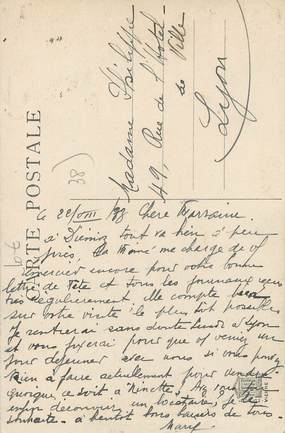 CARTE POSTALE
Madame Philippe
49, Rue de l'Hôtel
de Ville
Lyon
38
Le 22/VIII /38 Chère Marraine.
à Diémoz tout va bien à peu
près. La Mémé me charge de vs
remercier encore pour votre bonne
lettre de fête et tous les journaux reçus
très régulièrement. Elle compte
sur votre visite le plus tôt possible
Je rentrerai sans doute lundi à Lyon
et vous fixerai pour que vs veniez un
jour déjeuner avec nous si vous pouvez
Rien à faire actuellement pour vendre
quoique ce soit à Ninette. Avez vous
enfin découvert un locataire, je le
souhaite. à bientôt bons baisers de tous.